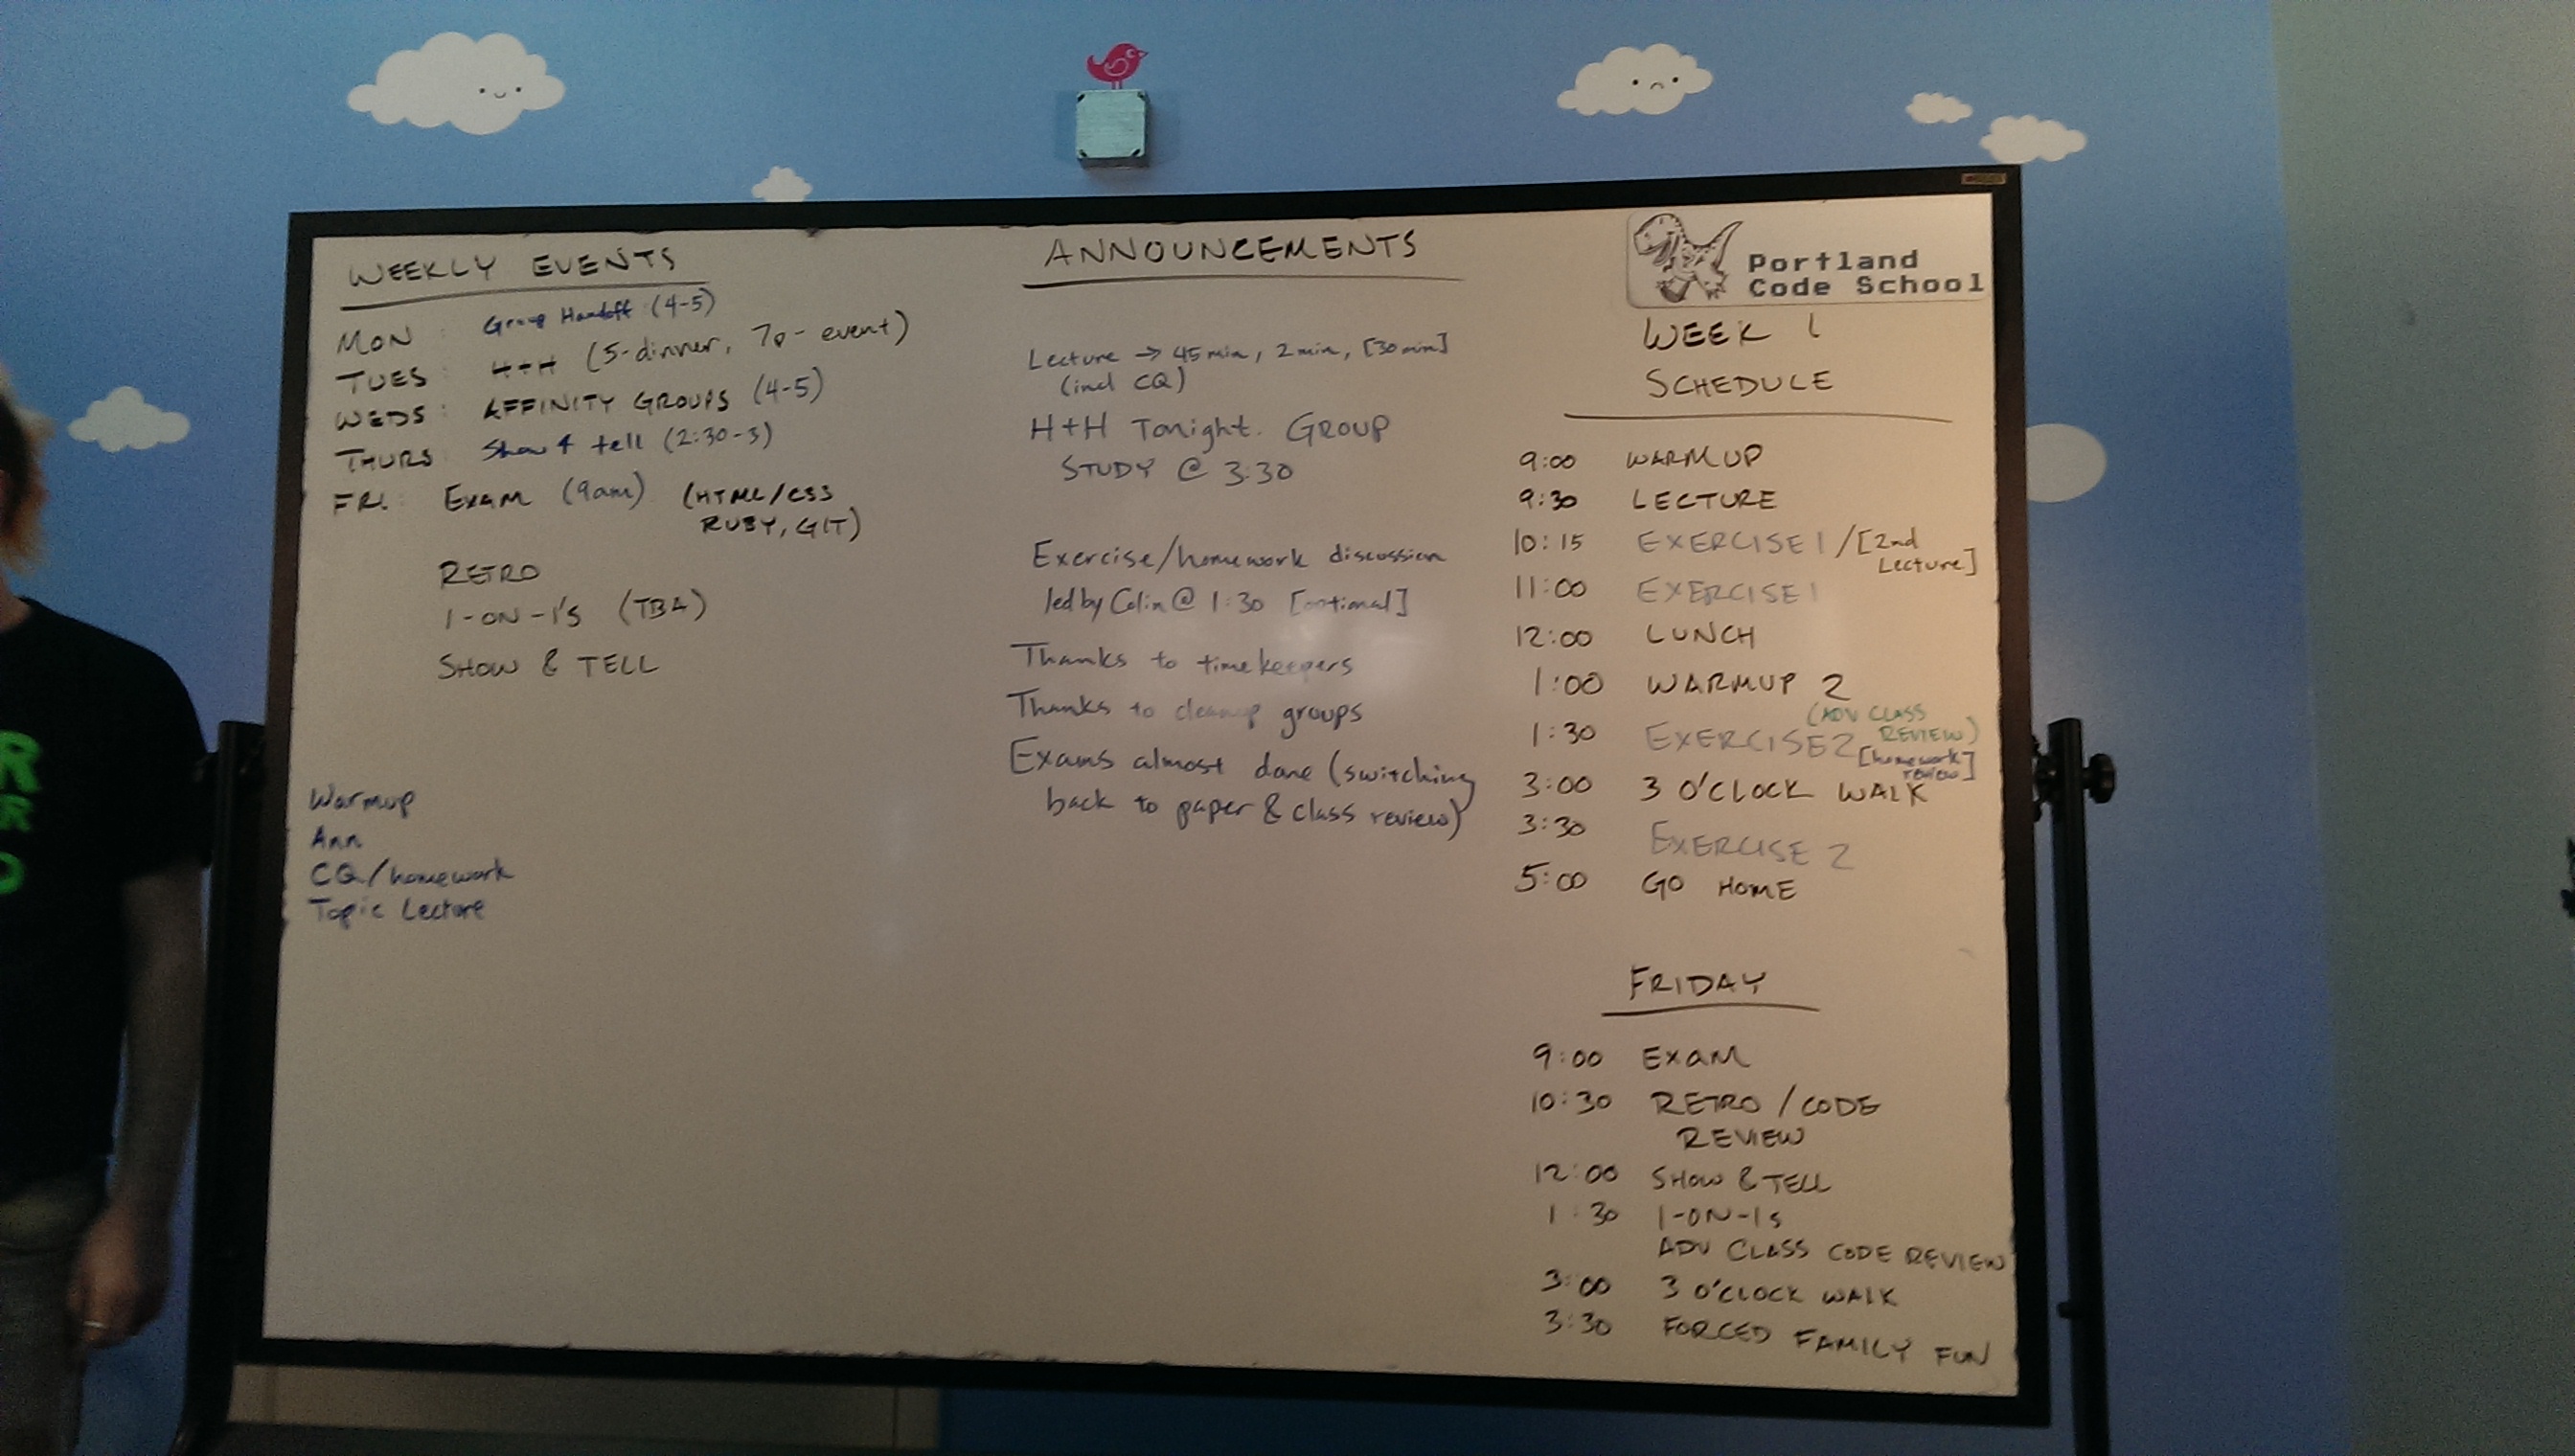 WEEKLY EVENTS
MON : Group Handoff (4-5)
TUES : H+H (5-dinner, 7p- event)
WEDS : AFFINITY GROUPS (4-5)
THURS Show & tell (2:30-3)
FRI. EXAM (9am) (HTML/CSS
RUBY, GIT)
RETRO
1-ON-1'S (TBA)
SHOW & TELL
Warmup
Ann
CQ/homework
Topic Lecture
ANNOUNCEMENTS
Lecture → 45min, 2min, [30min]
(incl CQ)
H+H Tonight. GROUP
STUDY @ 3:30
Exercise/homework discussion
led by Colin @ 1:30 [optional]
Thanks to timekeepers
Thanks to cleanup groups
Exams almost done (switching
back to paper & class review)
Portland
Code School
WEEK 1
SCHEDULE
9:00 WARMUP
9:30 LECTURE
10:15 EXERCISE 1 / [2nd
Lecture]
11:00 EXERCISE 1
12:00 LUNCH
1:00 WARMUP 2
(ADV CLASS
REVIEW)
1:30 EXERCISE 2 [homework
review]
3:00 3 O'CLOCK WALK
3:30 EXERCISE 2
5:00 GO HOME
FRIDAY
9:00 EXAM
10:30 RETRO / CODE
REVIEW
12:00 SHOW & TELL
1:30 1-ON-1s
ADV CLASS CODE REVIEW
3:00 3 O'CLOCK WALK
3:30 FORCED FAMILY FUN